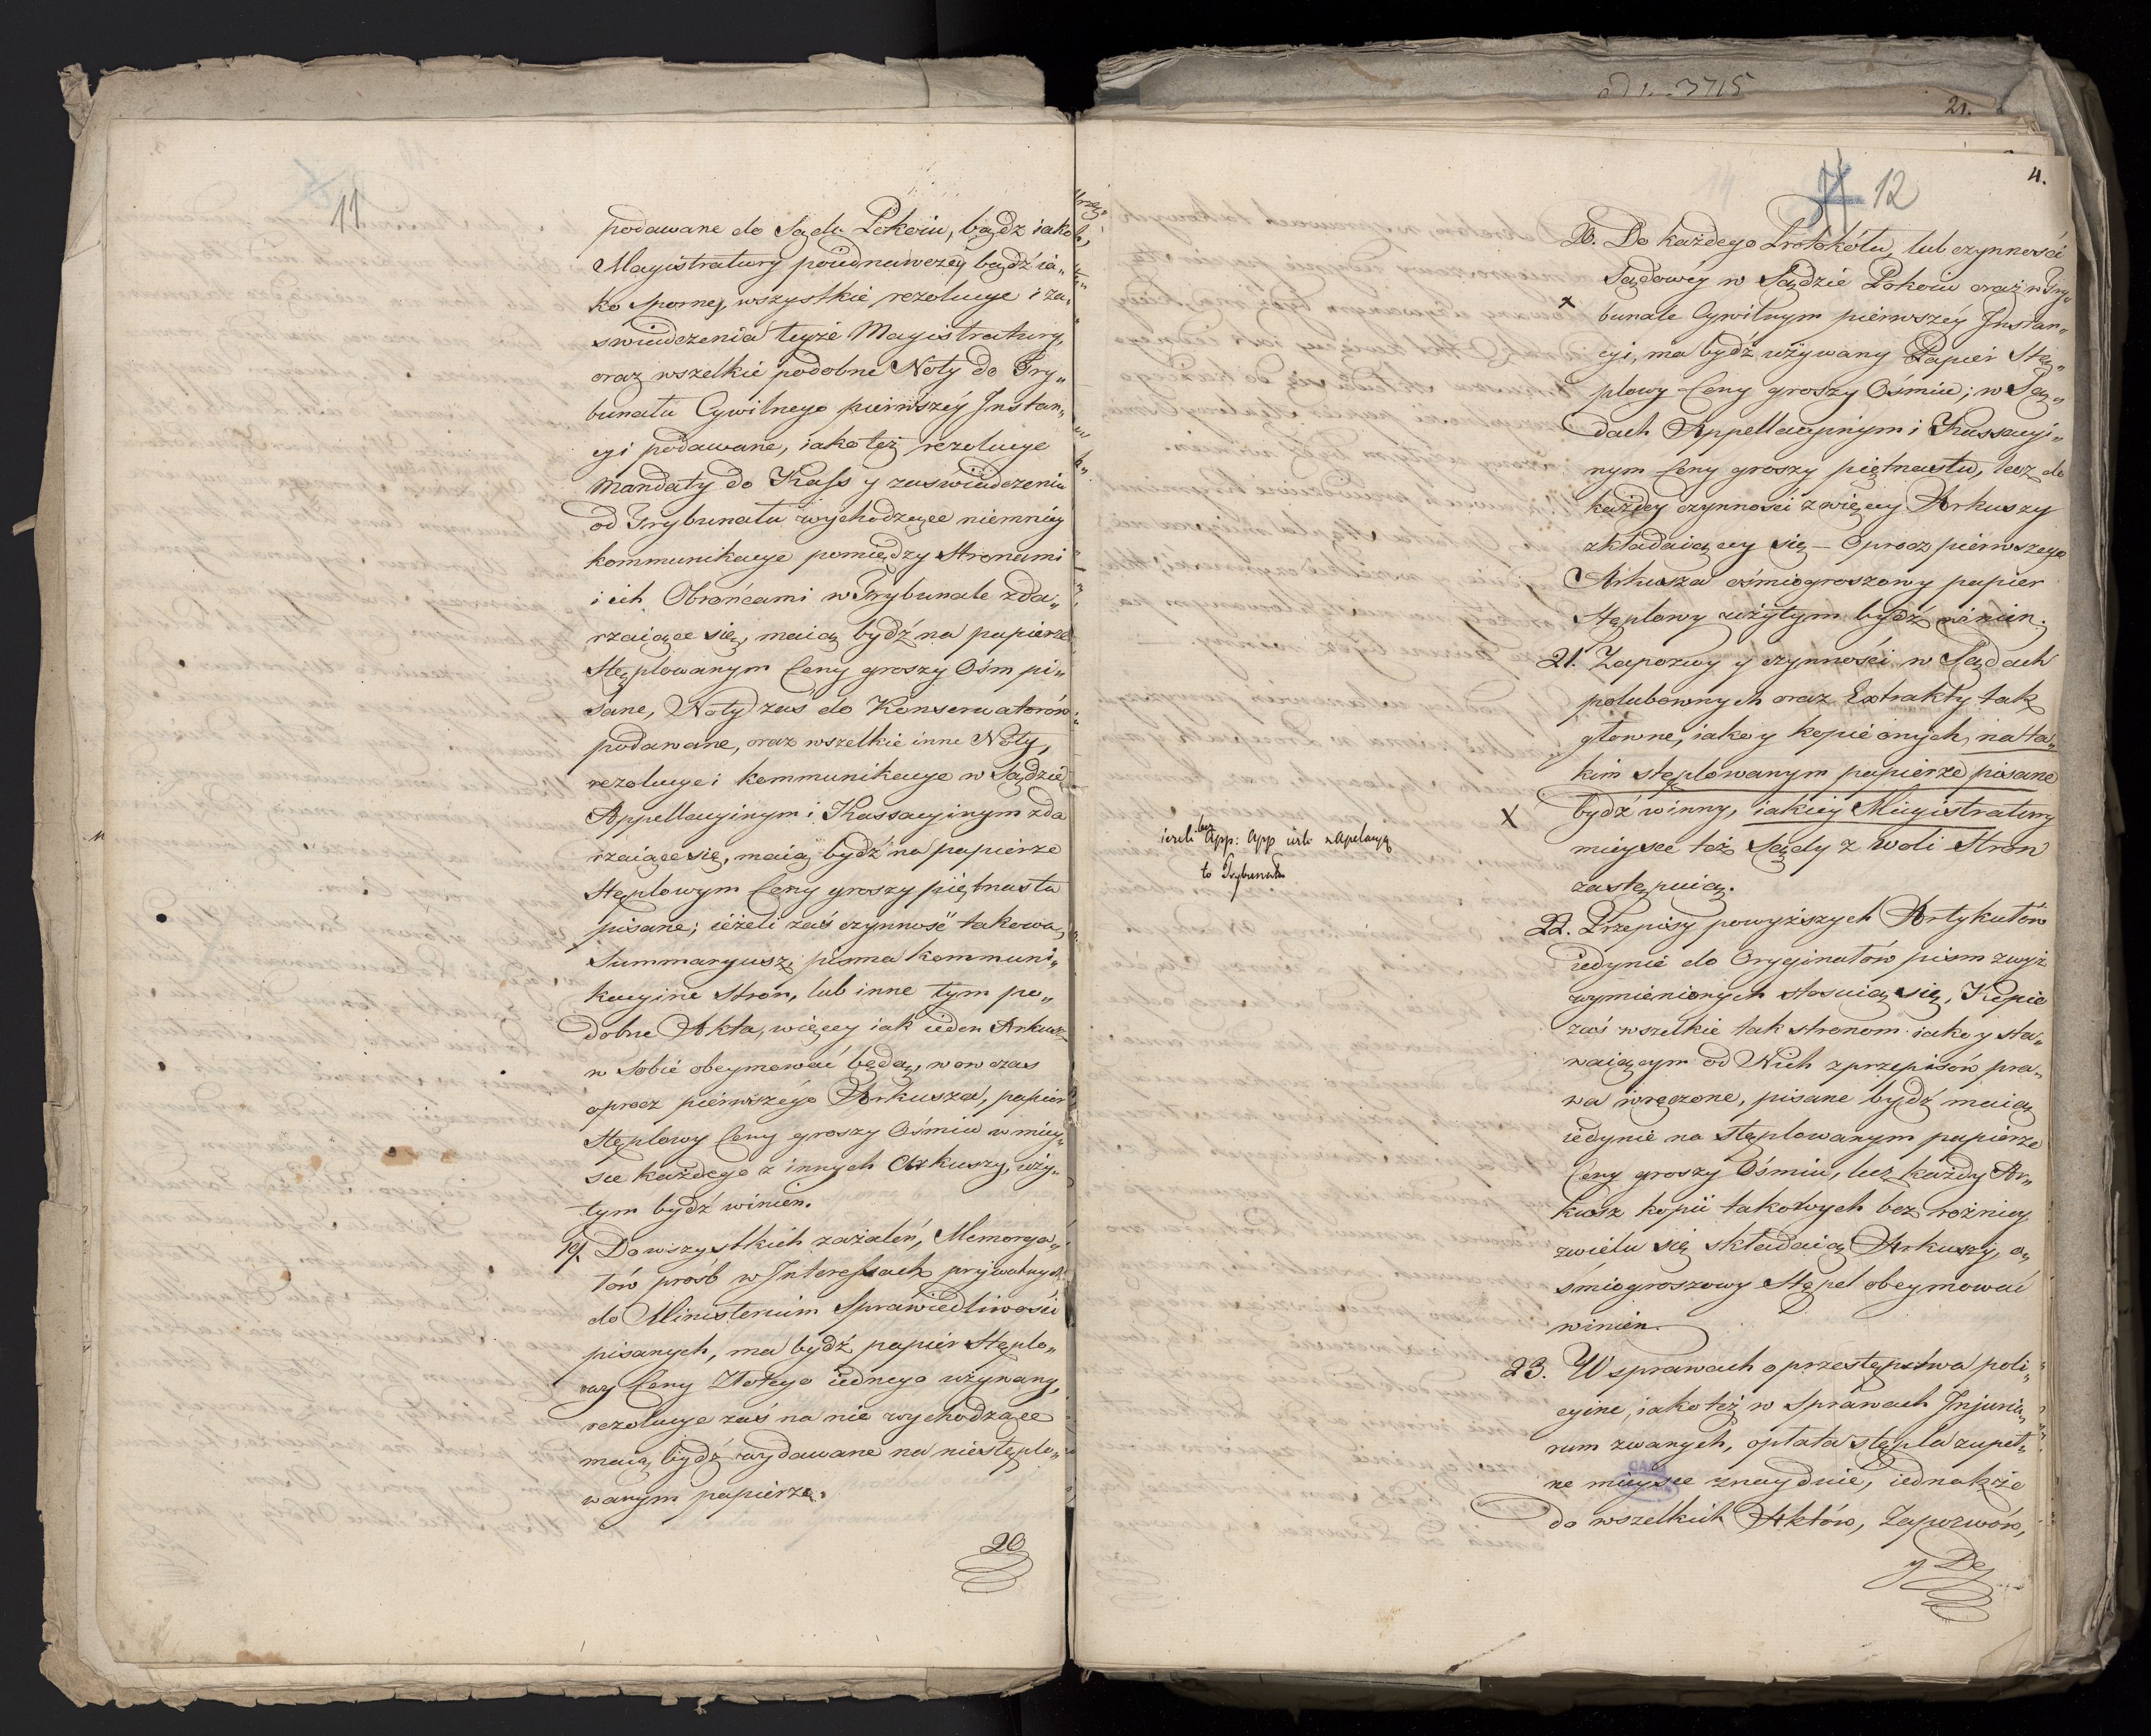 11
podawane do Sądu Pokoiu, bądź iako
Magistratury poiednawczey bądź ia„
ko sporney, wszystkie rezolucye i za„
swiadczenia teyże Magistratury,
oraz wszelkie podobne Noty do Try„
bunału Cywilnego pierwszéy Instan„
cyi podawane, iako też rezolucye
Mandaty do Kass y zaswiadczenia
od Trybunału wychodzące niemniey
kommunikacye pomiędzy Stronami
i ich Obrońcami w Trybunale zda„
rzaiące się, maią bydź na papierze
Stęplowanym Ceny groszy Ośm pi„
sane, Noty zaś do Konserwatorów
podawane, oraz wszelkie inne Noty,
rezolucye i kommunikacye w Sądzie
Appellacyinym i Kassacyinym zda
rzaiące się, maią bydź na papierze
Stęplowym Ceny groszy piętnastu
pisane; ieżeli zaś czynność takowa,
Summaryusz, pisma kommuni„
kacyine stron, lub inne tym po„
dobne Akta, więcey iak ieden Arkusz
w sobie obeymować będą, wowczas
oprocz pierwszégo Arkusza, papier
Stęplowy Ceny groszy Ośmiu w miey„
sce każdego z innych Arkuszy, uży„
tym bydź winien.
19. Do wszystkich zażaleń, Memorya„
łów prośb w Interessach prywatnych
do Ministerium Sprawiedliwości
pisanych, ma bydź papier Stęplo„
wy Ceny Złotego iednego używany,
rezolucye zaś na nie wychodzące
maią bydź wydawane na niestęplo„
wanym papierze.
20
21.
4.
12
20. Do każdego Protokółu, lub czynności
Sądowéy w Sądzie Pokoiu oraz w Try„
x
bunale Cywilnym pierwszéy Instan„
cyi, ma bydź używany Papier Stę„
plowy Ceny groszy Ośmiu; w Są„
dach Appellacyinym i Kassacyi„
nym Ceny groszy piętnastu, lecz do
każdey czynności z więcey Arkuszy
składaiącey się – oprocz pierwszego
Arkusza ośmiogroszowy papier
Stęplowy użytym bydź winien.
21. Zapozwy y czynności w Sądach
polubownych oraz Extrakty tak
głowne, iako y kopie onych, na ta„
kim stęplowanym papierze pisane
X bydź winny, iakiey Magistratury
mieysce też Sądy z woli Stron
zastępuią.
bez
ieżeli App: App ieśli z Apelacyą
to Trybunału
22. Przepisy powyższych Artykułów
iedynie do Oryginałów pism zwyż
wymienionych stosuią się, Kopie
zaś wszelkie tak stronom iako y sta„
waiącym od Nich z przepisów pra„
wa wręczone, pisane bydź maią
iedynie na stęplowanym papierze
Ceny groszy Ośmiu, lecz każdy Ar„
kusz kopii takowych bez rożnicy
z wielu się składaią Arkuszy, o„
śmiogroszowy Stępel obeymować
winien.
23. W sprawach o przestępstwa poli„
cyine, iako też w Sprawach Injuria„
rum zwanych, opłata stępla zupeł„
ne mieysce znayduie, iednakże
do wszelkich Aktów, Zapozwów,
y De„